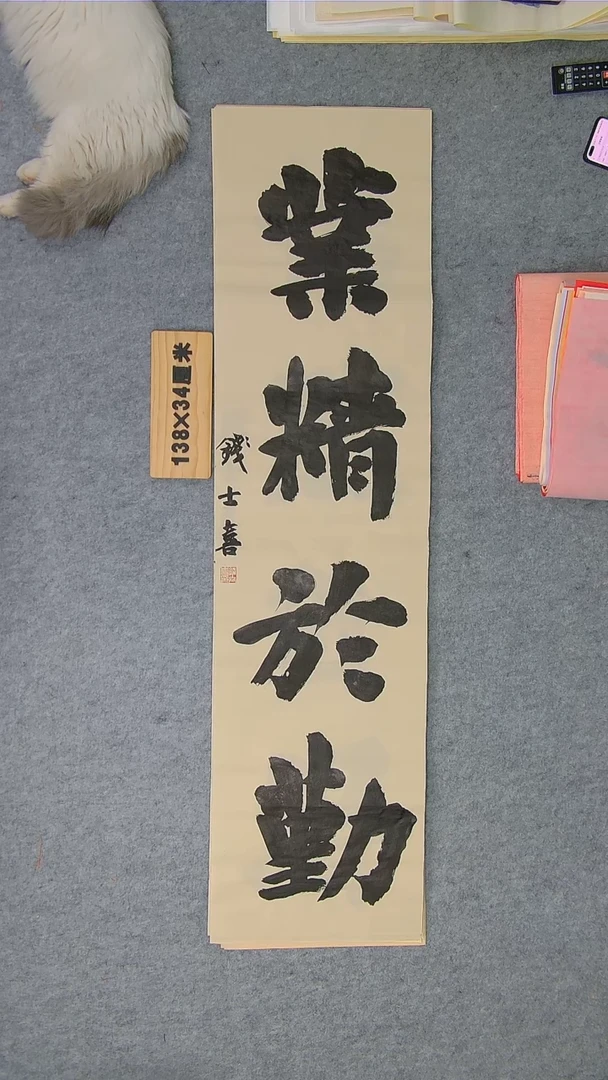 業精於勤
錢士喜
138×34厘米